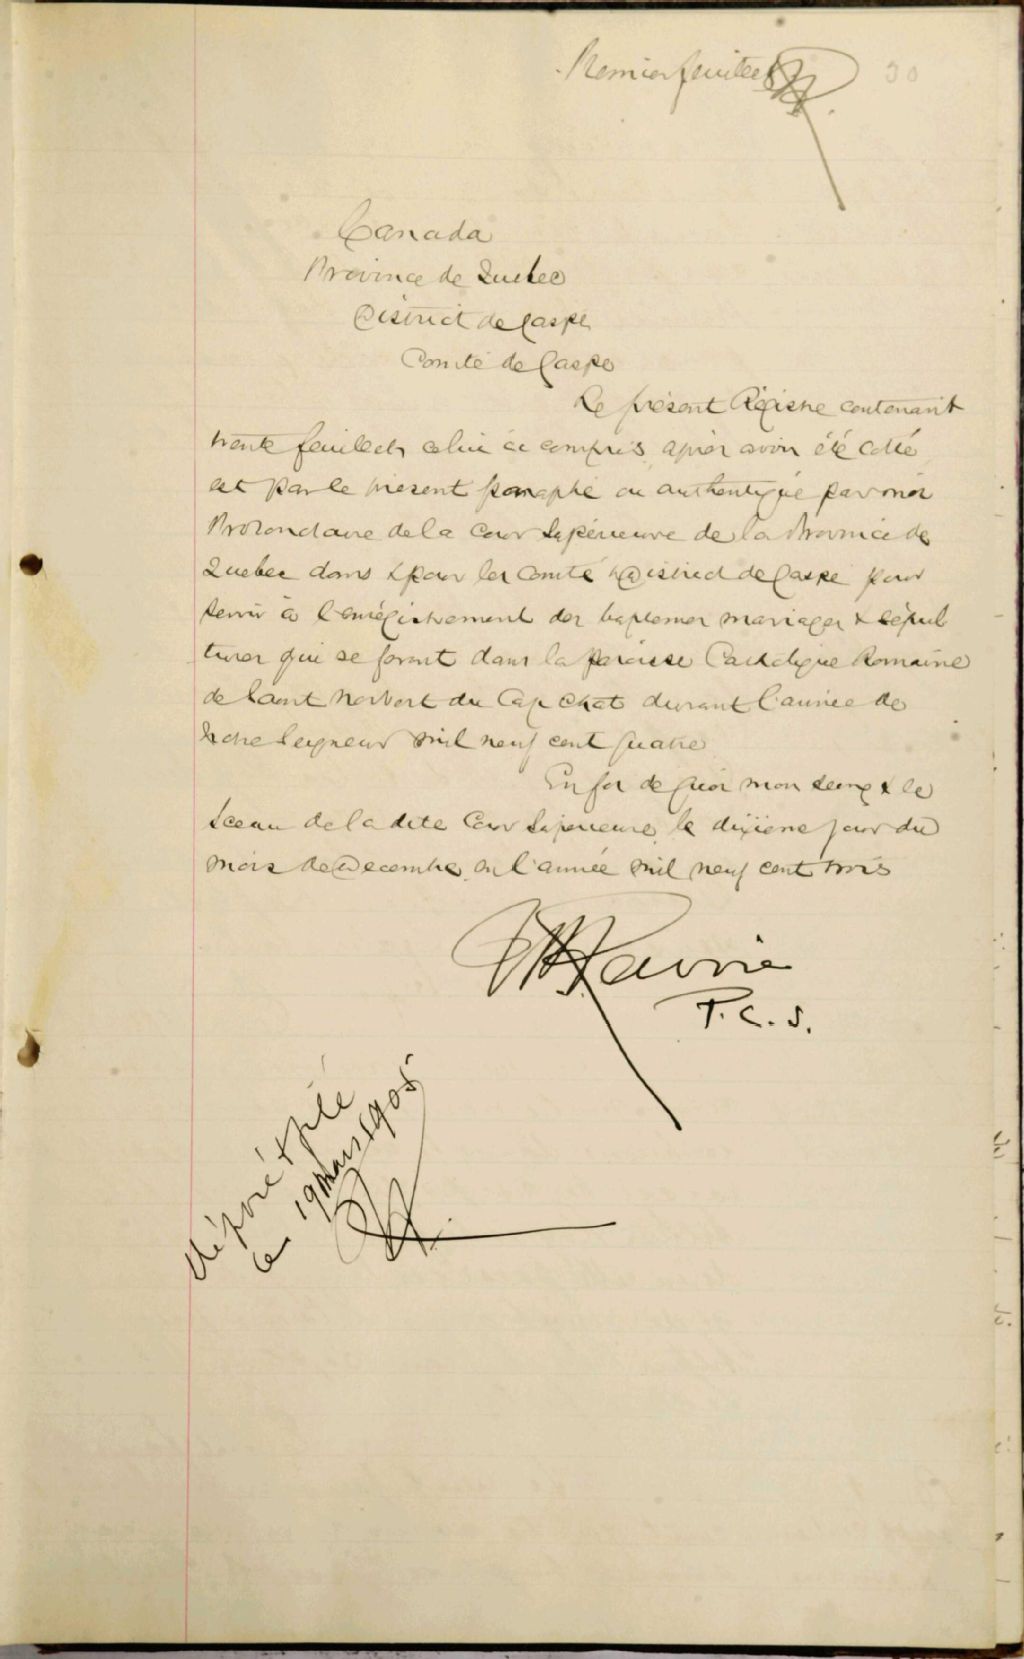 Premier feuillet
30
Canada
Province de Quebec
District de Gaspé
Comté de Gaspé
Le présent Régistre contenant
trente feuillets celui ci compris, après avoir été cotté
est par le present paraphé ou authentiqué par moi
Protonotaire de la Cour Supérieure de la Province de
Quebec dans & pour les Comté & District de Gaspé pour
servir à l'enrégistrement des baptemes mariages & sépul
tures qui se feront dans la paroisse Catholique Romaine
de Saint Norbert du Cap Chat durant l'année de
Notre Seigneur mil neuf cent quatre
En foi de quoi mon seing & le
Sceau de la dite Cour Supérieure le dixième jour du
mois de Decembre en l'année mil neuf cent trois
Lavoie
P.C.S.
déposé & filé
le 19 mars 1905